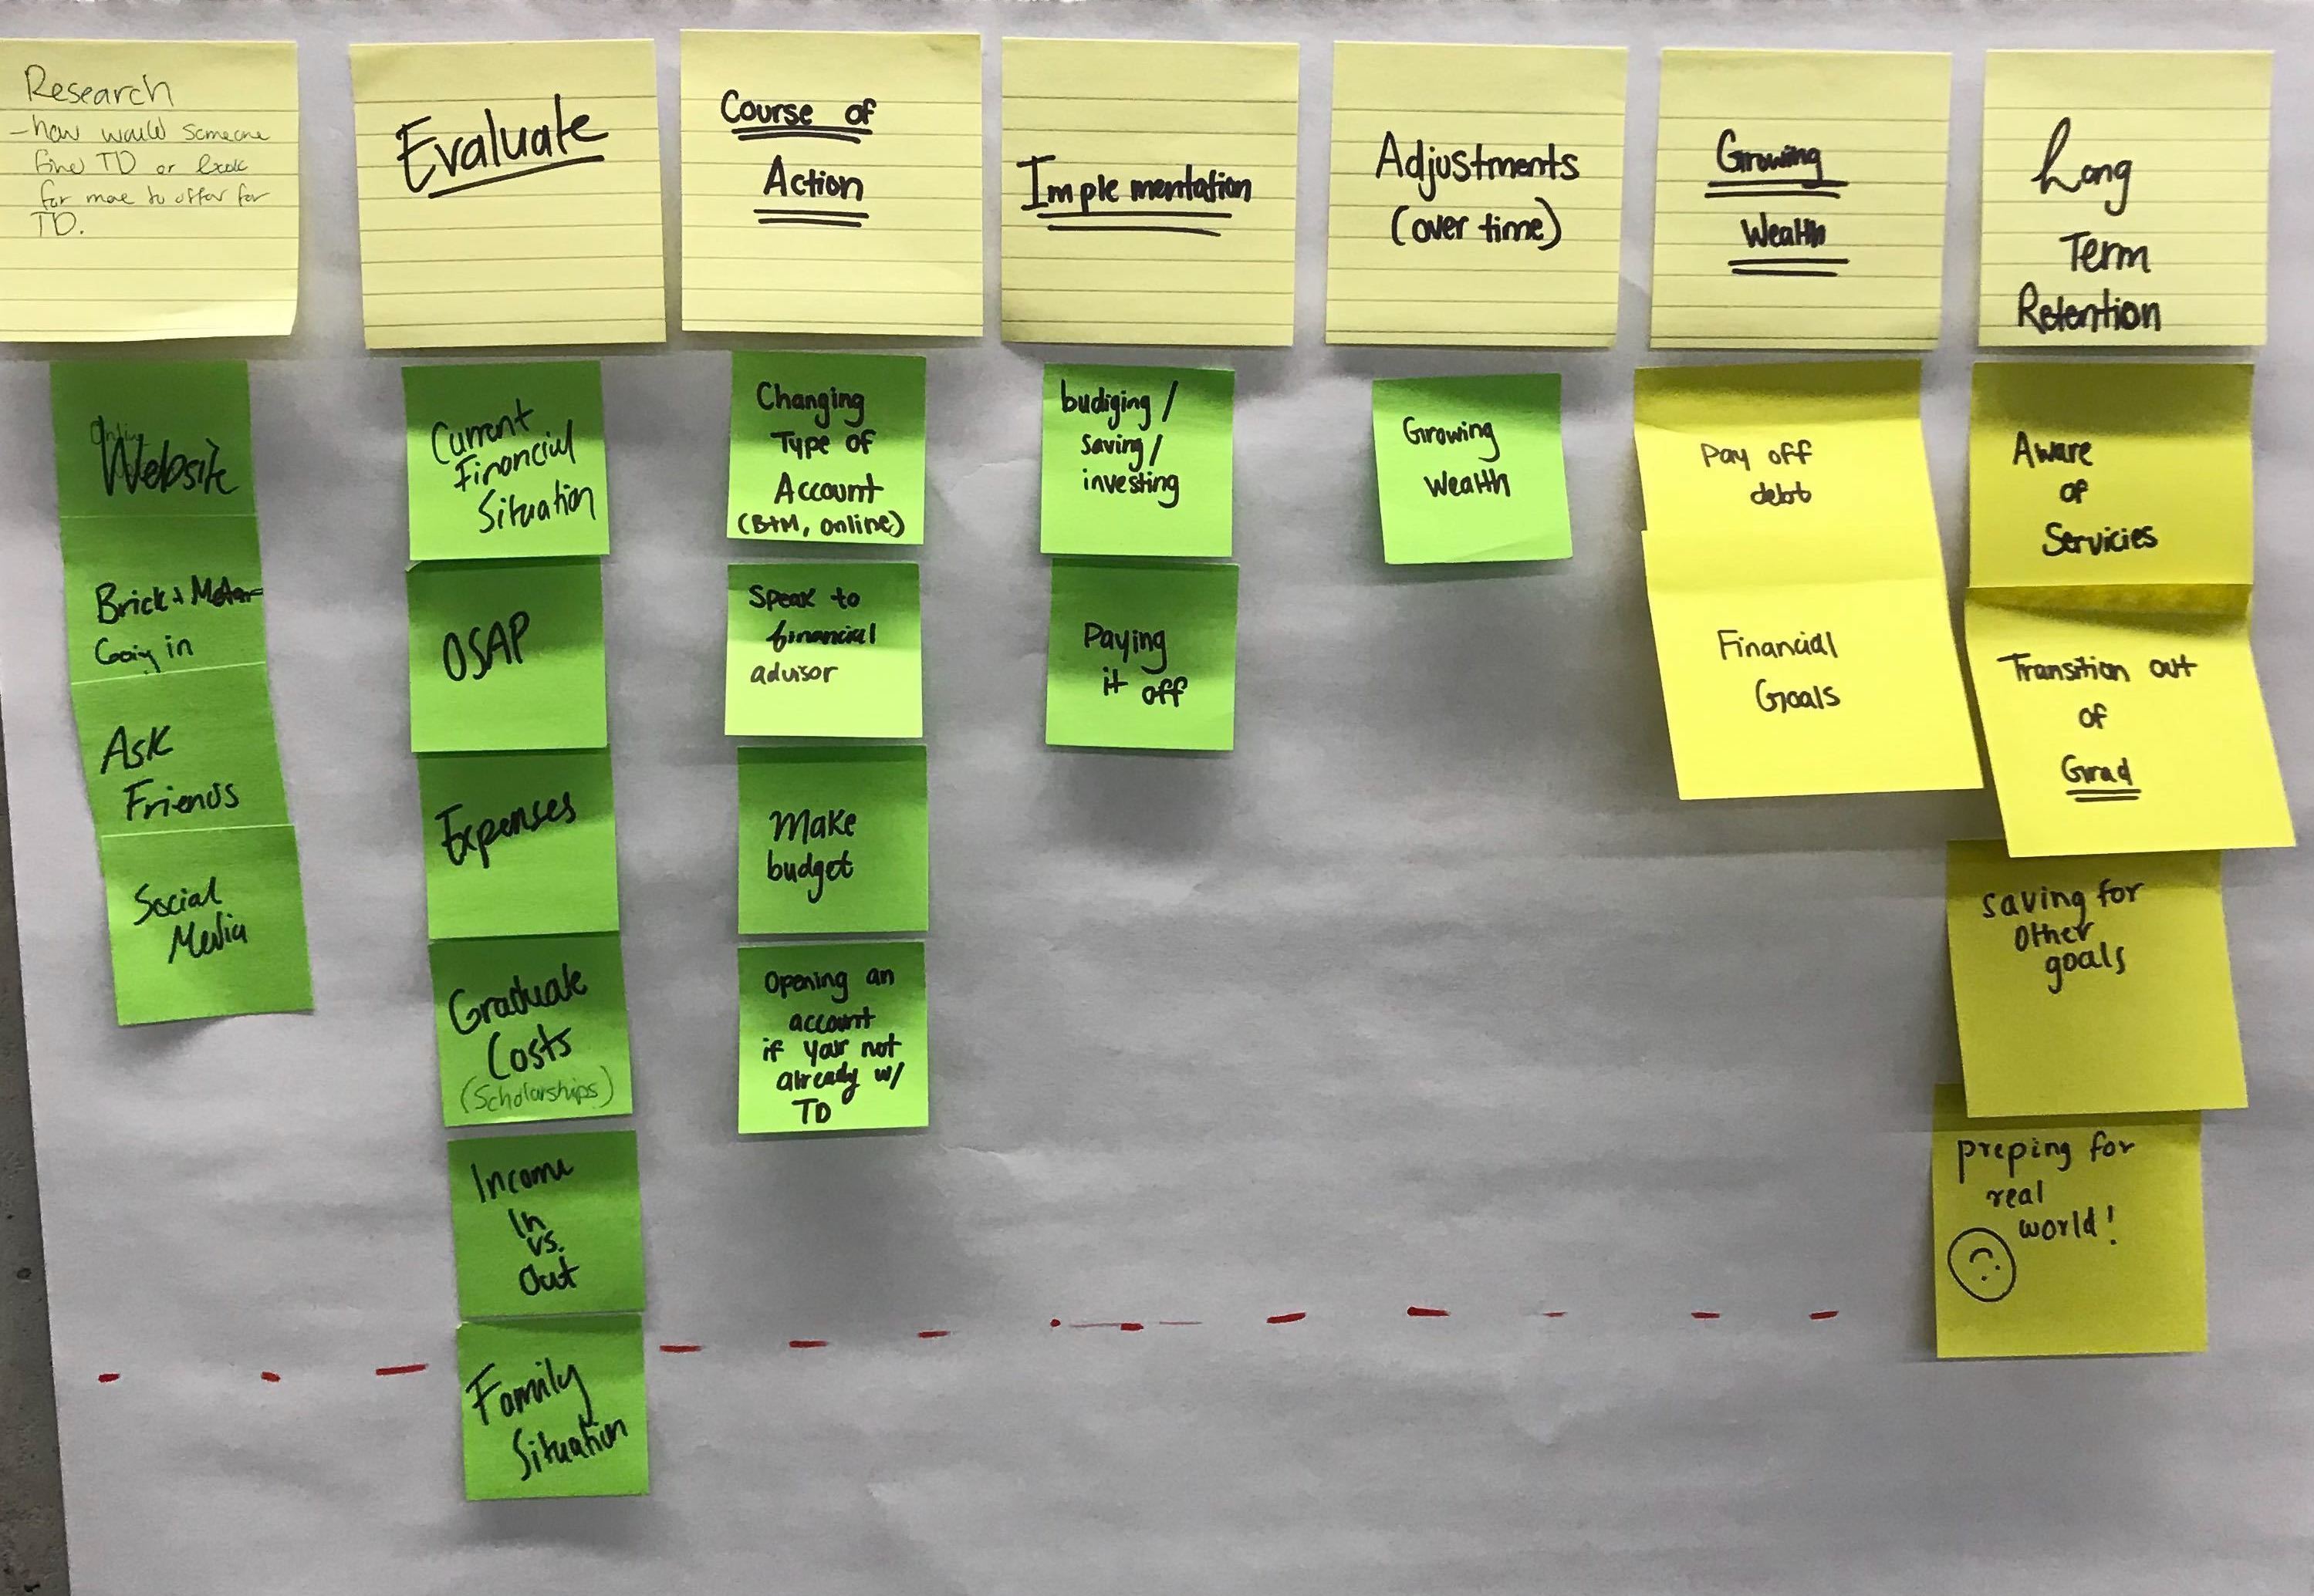 Research
- how would someone
find TD or look
for more to offer for
TD.
Website
Brick + Motar
Going in
Ask
Friends
Social
Media
Evaluate
Current
Financial
Situation
OSAP
Expenses
Graduate
Costs
(Scholarships)
Income
In
vs.
Out
Family
Situation
Course of
Action
Changing
Type of
Account
(B+M, online)
Speak to
financial
advisor
Make
budget
Opening an
account
if your not
already w/
TD
Implementation
budiging /
saving /
investing
Paying
it off
Adjustments
(over time)
Growing
Wealth
Growing
Wealth
Pay off
debt
Financial
Goals
Long
Term
Retention
Aware
of
Servicies
Transition out
of
Grad
saving for
other
goals
preping for
real
world!